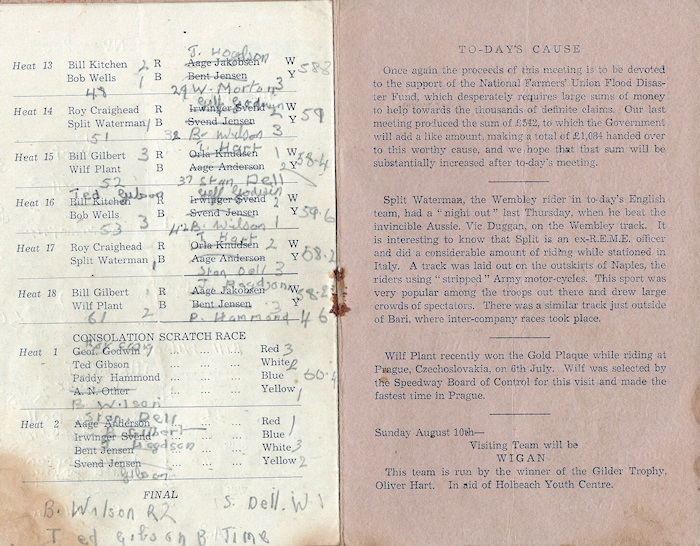 J. Hodgson
Heat 13 Bill Kitchen 2 R Aage Jakobsen W 58.8
Bob Wells 1 B Bent Jensen Y 3
48 29 W. Morton
Heat 14 Roy Craighead R Irwinger Svend 2 W 59
Split Waterman 1 B Svend Jensen Y
51 32 B. Wilson 3
J. Hart
Heat 15 Bill Gilbert 3 R Orla Knudsen 1 W 58.4
Wilf Plant B Aage Anderson 2 Y
52 37 Stan Dell
Ted Gibson Geff Godwin
Heat 16 Bill Kitchen R Irwinger Svend 2 W 59.6
Bob Wells 3 B Svend Jensen Y
53 42 B. Wilson 1
Hart
Heat 17 Roy Craighead R Orla Knudsen 2 W 58.2
Split Waterman 1 B Aage Anderson Y
Stan Dell 3
Hodgson
Heat 18 Bill Gilbert 1 R Aage Jakobsen W
Wilf Plant 2 B Bent Jensen 3 Y
61 P. Hammond 46
CONSOLATION SCRATCH RACE
Heat 1 Geof. Godwin ... ... Red 3
Ted Gibson ... ... White 2
Paddy Hammond ... ... Blue
A. N. Other ... ... Yellow 1
B. Wilson
Stan Dell
Heat 2 Aage Anderson ... ... Red 1
Irwinger Svend Gilbert ... Blue
Bent Jensen Hodgson ... White 3
Svend Jensen ... ... Yellow 2
Gibson
FINAL
B. Wilson R2 S. Dell. W1
Ted Gibson B Time
TO-DAY'S CAUSE
Once again the proceeds of this meeting is to be devoted
to the support of the National Farmers' Union Flood Disas-
ter Fund, which desperately requires large sums of money
to help towards the thousands of definite claims. Our last
meeting produced the sum of £542, to which the Government
will add a like amount, making a total of £1,084 handed over
to this worthy cause, and we hope that that sum will be
substantially increased after to-day's meeting.
Split Waterman, the Wembley rider in to-day's English
team, had a "night out" last Thursday, when he beat the
invincible Aussie, Vic Duggan, on the Wembley track. It
is interesting to know that Split is an ex-R.E.M.E. officer
and did a considerable amount of riding while stationed in
Italy. A track was laid out on the outskirts of Naples, the
riders using "stripped" Army motor-cycles. This sport was
very popular among the troops out there and drew large
crowds of spectators. There was a similar track just outside
of Bari, where inter-company races took place.
Wilf Plant recently won the Gold Plaque while riding at
Prague, Czechoslovakia, on 6th July. Wilf was selected by
the Speedway Board of Control for this visit and made the
fastest time in Prague.
Sunday August 10th—
Visiting Team will be
WIGAN
This team is run by the winner of the Gilder Trophy,
Oliver Hart. In aid of Holbeach Youth Centre.